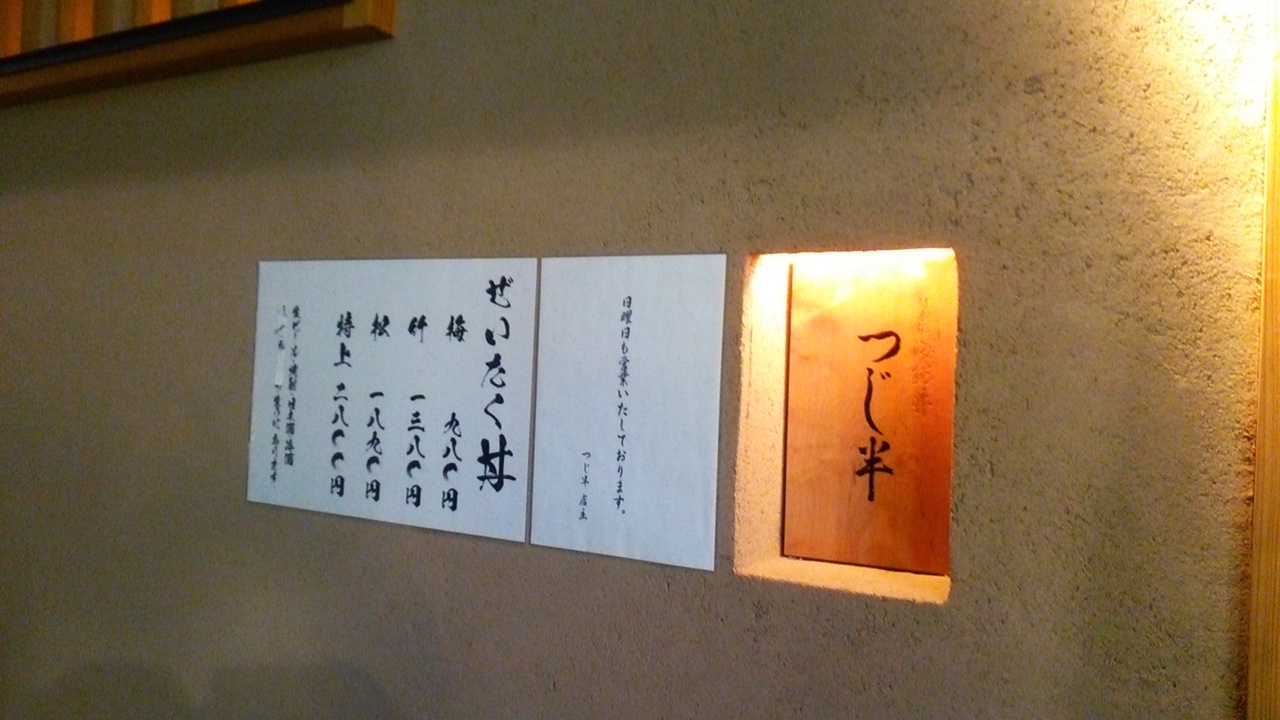 つじ半
日曜日も営業いたしております。
つじ半 店主
ぜいたく丼
梅 九八〇円
竹 一三八〇円
松 一八九〇円
特上 二八〇〇円